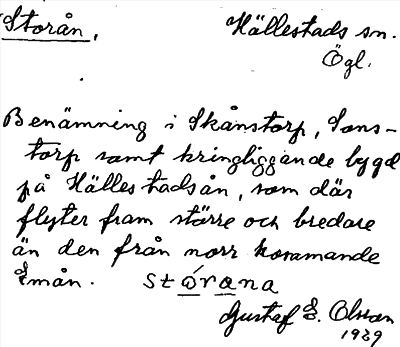 Storån,
Hällestads sn.
Ögl.
Benämning i Skånstorp, Sons-
torp samt kringliggande bygd
på Hällestadsån, som där
flyter fram större och bredare
än den från norr kommande
Emån. stórana
Gustaf E. Olsson
1929